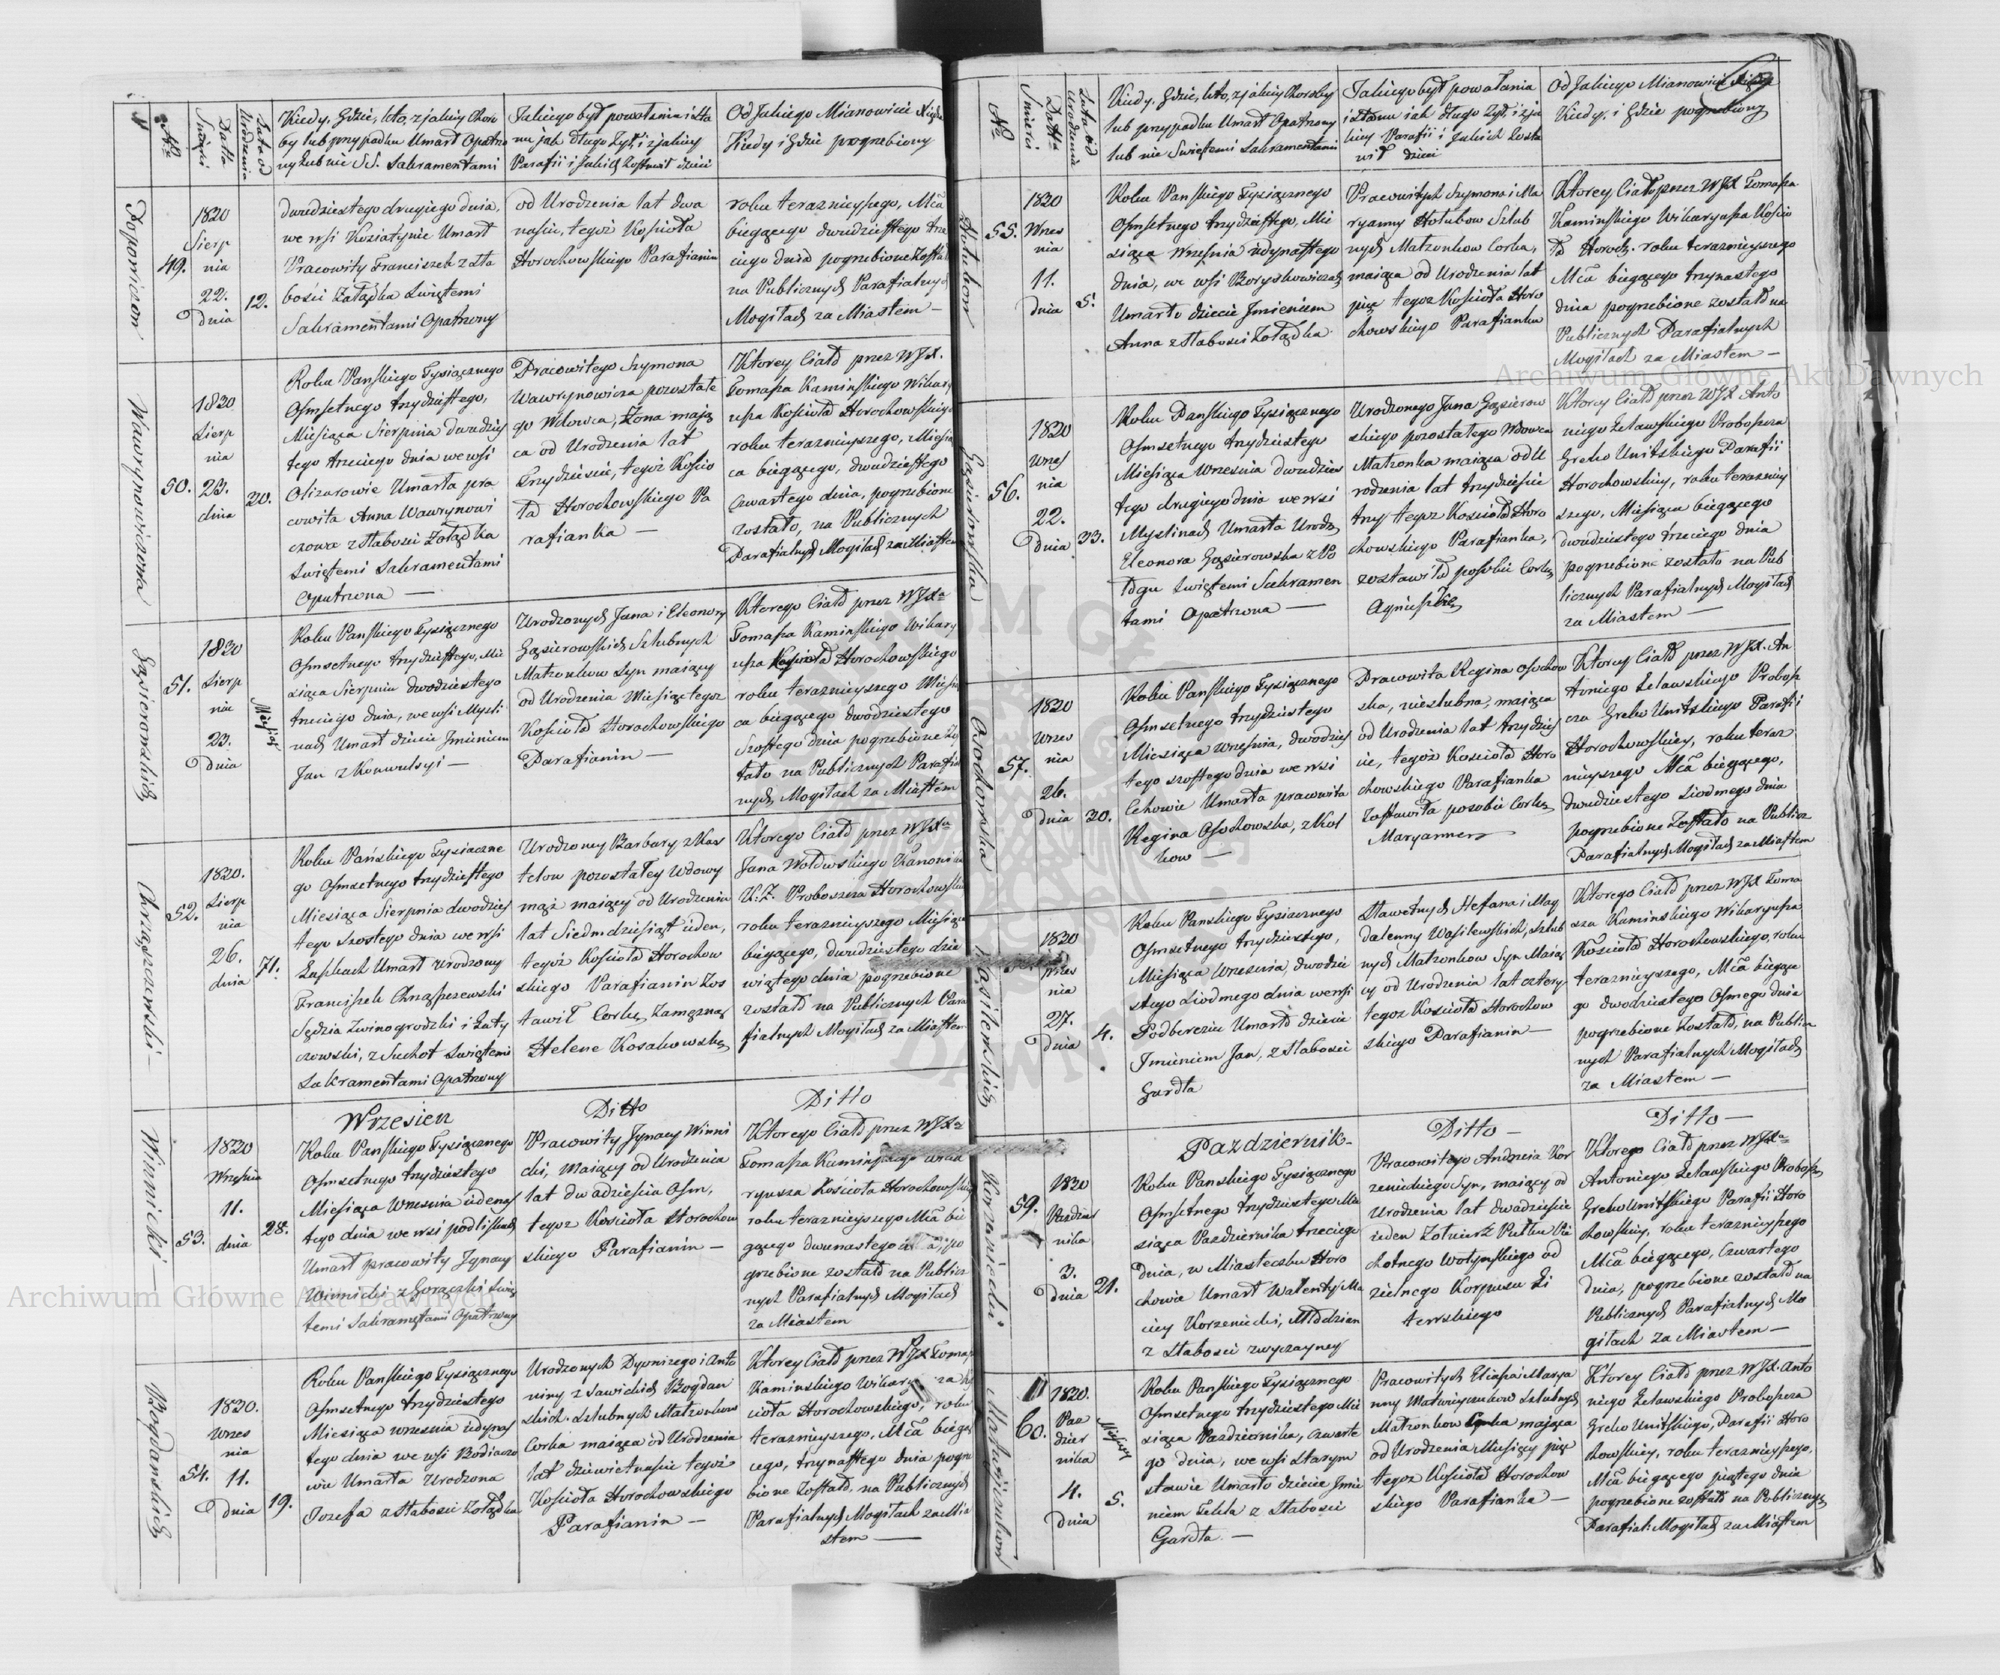 No
Datta Śmierci
Lata od Urodzenia
Kiedy, Gdzie, kto, z jakiey Choro
by lub przypadku Umarł Opatrzo
ny lub nie SS. Sakramentami
Jakiego był powołania i sta
nu jak długo Żył i z jakiey
Parafii i jakich zostawił dzieci
Od Jakiego Mianowicie
Kiedy i Gdzie pogrzebiony
49.
1820
Sierp
nia
22.
Dnia
12.
dwudziestego drugiego dnia,
we wsi Koziatynie Umarł
Pracowity Franciszek z sła
bości Żołądka Swiętemi
Sakramentami Opatrzony
od Urodzenia lat dwa
naście, tegoż Kościoła
Horochowskiego Parafianin
roku teraznieyszego, Mca
bieżącego dwudziestego trze
ciego dnia pogrzebione
na Publicznych Parafialnych
Mogiłach za Miastem —
Wawrynowiczowa
50.
1820
Sierp
nia
23.
dnia
30.
Roku Panskiego Tysiącznego
Osmsetnego trzydziestego,
Miesiąca Sierpnia dwudzies
tego trzeciego dnia we wsi
Olizarowie Umarła pra
cowita Anna Wawrynowi
czowa z słabosci Żołądka
Swiętemi Sakramentami
Opatrzona —
Pracowitego Szymona
Wawrynowicza pozostałe
go Wdowca, Żona mają
ca od Urodzenia lat
Trzydzieście, tegoż Kościo
ła Horochowskiego Pa
rafianka —
Ktorey Ciało przez WJX.
Tomasza Kaminskiego Wikary
usza Kościoła Horochowskiego
roku teraznieyszego, Miesią
ca bieżącego, dwudziestego
Czwartego dnia, pogrzebione
zostało, na Publicznych
Parafialnych Mogiłach za Miastem
Gąsierowskich
51.
1830
Sierp
nia
23.
Dnia
Roku Panskiego Tysiącznego
Osmsetnego trzydziestego, Mie
siąca Sierpnia dwodziestego
trzeciego dnia, we wsi Mysli
nach Umarł dziecie Jmieniem
Jan z Konwulsyi —
Urodzonych Jana i Eleonory
Gąsierowskich Szlubnych
Małżonkow Syn maiący
od Urodzenia Miesiąc tegoż
Kościoła Horochowskiego
Parafianin —
Ktorego Ciało przez WJXa
Tomasza Kaminskiego Wikary
usza Kościoła Horochowskiego
roku teraznieyszego Miesią
ca bieżącego dwodziestego
Szostego dnia pogrzebione Zo
stało na Publicznych Parafial
nych Mogiłach za Miastem
Chrząszczewski —
52.
1820.
Sierp
nia
26.
dnia
71.
Roku Pańskiego Tysiączne
go Osmsetnego trzydziestego
Miesiąca Sierpnia dwodzies
tego szostego dnia we wsi
Umarł Urodzony
Franciszek Chrząszczewski
Sędzia Zwinogrodzki i Łaty
czowski, z Suchot Swiętemi
Sakramentami Opatrzony
Urodzoney Barbary z Kos
telow pozostałey Wdowy
mąż maiący od Urodzenia
lat Siedmdziesiąt ieden,
tegoż Kościoła Horochow
skiego Parafianin Zos
tawił Corkę Zamężną
Helene Kosakowską
Ktorego Ciało przez WJXa
Jana Kanonika
K.Ł. Proboszcza Horochowskie
roku teraznieyszego Miesiąca
bieżącego, dwudziestego dzie
wiątego dnia pogrzebione
zostało na Publicznych Para
fialnych Mogiłach za Miastem
Wrzesien
Ditto
Ditto
Winnicki
53.
1820
Wrzesnia
11.
dnia
28.
Roku Panskiego Tysiącznego
Osmsetnego trzydziestego
Miesiąca Wrzesnia iedenas
tego dnia we wsi
Umarł pracowity Jgnacy
Winnicki z Gorączki Swię
temi Sakramentami Opatrzony
Pracowity Jgnacy Winni
cki, Maiący od Urodzenia
lat dwadzieścia Osm,
tegoż Kościoła Horochow
skiego Parafianin —
Ktorego Ciało przez WJXa
Tomasza Kaminskiego Wika
ryusza Kościoła Horochowskiego
roku teraznieyszego Mca bie
żącego dwunastego dnia, po
grzebione zostało na Publicz
nych Parafialnych Mogiłach
za Miastem
Bogdanskich
54.
1820.
Wrzes
nia
11.
Dnia
19.
Roku Panskiego Tysiącznego
Osmsetnego trzydziestego
Miesiąca wrzesnia iedynas
tego dnia we wsi
Umarła Urodzona
Jozefa z słabosci Żołądka
Urodzonych Dyonizego i Anto
niny z Sawickich Bogdan
skich Szlubnych Małżonkow
Corka maiąca od Urodzenia
lat dziewietnaście tegoż
Kościoła Horochowskiego
Parafianin —
Ktorey Ciało przez WJX Tomasza
Kaminskiego
ciola Horochowskiego, roku
teraznieyszego, Mca bieżą
cego, trzynastego dnia pogrze
bione Zostało, na Publicznych
Parafialnych Mogiłach za Mia
stem —
No
Datta Śmierci
Lata od Urodzenia
Kiedy, Gdzie, kto, z jakiey Choroby
lub przypadku Umarł Opatrzony
lub nie Swiętemi Sakramentami
Jakiego był powołania
i stanu iak długo Żył, i z ja
kiey Parafii i Jakich Zosta
wił dzieci
Od Jakiego Mianowicie
Kiedy, i Gdzie pogrzebiony
Hołubow
55.
1820
Wrzes
nia
11.
Dnia
5.
Roku Panskiego Tysiącznego
Osmsetnego trzydziestego, Mie
siąca Wrzesnia iedynastego
dnia, we wsi Boryskowiczach
Umarło dziecie Jmieniem
Anna z słabosci Żołądka
Pracowitych Szymona i Ma
ryanny Hołubow Szlub
nych Małżonkow Corka,
maiąca od Urodzenia lat
pięć tegoż Kościoła Horo
chowskiego Parafianka
Ktorey Ciało przez WJX Tomasza
Kaminskiego Wikaryusza Kościo
ła Horoch. roku teraznieyszego
Mca bieżącego trzynastego
dnia pogrzebione zostało na
Publicznych Parafialnych
Mogiłach za Miastem —
Gąsierowska
56.
1820
Wrzes
nia
22.
Dnia
33.
Roku Panskiego Tysiącznego
Osmsetnego trzydziestego
Miesiąca Wrzesnia dwudzies
tego drugiego dnia we wsi
Myslinach Umarła Urodz.
Eleonora Gąsierowska z Po
łogu Swiętemi Sakramen
tami Opatrzona —
Urodzonego Jana Gąsierow
skiego pozostałego Wdowca
Małżonka maiąca od U
rodzenia lat trzydzieście
trzy tegoż Kościoła Horo
chowskiego Parafianka,
zostawiła po sobie Corkę
Agnieszkę
Ktorey Ciało przez WJX Anto
niego Zelawskiego Proboszcza
Greko Unitskiego Parafii
Horochowskiey, roku terazniey
szego, Miesiąca bieżącego
dwudziestego trzeciego dnia
pogrzebione zostało na Pub
licznych Parafialnych Mogiłach
za Miastem —
Osochowska
57.
1820
Wrzes
nia
26.
Dnia
30.
Roku Panskiego Tysiącznego
Osmsetnego trzydziestego
Miesiąca wrzesnia, dwodzies
tego szostego dnia we wsi
Umarła pracowita
Regina Osochowska, z Kol
kow —
Pracowita Regina Osochow
ska, nieslubna, maiąca
od Urodzenia lat trzydzieś
cie, tegoż Kościoła Horo
chowskiego Parafianka
Zostawiła po sobie Corkę
Maryannę
Ktorey Ciało przez WJX. An
toniego Zelawskiego Probosz
cza Greko Unitskiego Parafii
Horochowskiey, roku teraz
nieyszego Mca bieżącego,
dwudziestego Siodmego dnia
pogrzebione Zostało na Publicz
Parafialnych Mogiłach za Miastem
Wasilewskich
1820
Wrzes
nia
27.
Dnia
4.
Roku Panskiego Tysiącznego
Osmsetnego trzydziestego,
Miesiąca Wrzesnia, dwodzie
stego Siodmego dnia we wsi
Podbereziu Umarło dziecie
Jmieniem Jan, z słabosci
Gardła
Sławetnych Stefana i Mag
daleny Wasilewskich, szlub
nych Małżonkow Syn Maią
cy od Urodzenia lat cztery
tegoż Kościoła Horochow
skiego Parafianin —
Ktorego Ciało przez WJX Toma
sza Kaminskiego Wikaryusza
Kościoła Horochowskiego, roku
teraznieyszego, Mca bieżące
go dwodziestego Osmego dnia
pogrzebione Zostało, na Publicz
nych Parafialnych Mogiłach
za Miastem —
Pazdziernik —
Ditto —
Ditto —
Korzeniecki
59.
1830
Pazdzier
nika
3.
Dnia
21.
Roku Panskiego Tysiącznego
Osmsetnego trzydziestego Mie
siąca Pazdziernika trzeciego
Dnia, w Miasteczku Horo
chowie Umarł Walenty Ma
ciey Korzeniecki, Młodzian
z słabosci zwyczayney
Pracowitego Andrzeia Kor
zenieckiego Syn, maiący od
Urodzenia lat dwadzieście
ieden Żołnierz Pułku Pie
chotnego Wołynskiego od
zielnego Korpusu Li
tewskiego
Ktorego Ciało przez WJXa
Antoniego Zelawskiego Probosz
Greko Unitskiego Parafii Horo
chowskiey, roku teraznieyszego
Mca bieżącego, Czwartego
dnia, pogrzebione zostało na
Publicznych Parafialnych Mo
giłach za Miastem —
60.
1820.
Paz
dzier
nika
4.
Dnia
5.
Roku Panskiego Tysiącznego
Osmsetnego trzydziestego Mie
siąca Pazdziernika, czwarte
go dnia, we wsi Starym
stawie Umarło dziecie Jmie
niem Tekla z słabosci
Gardła —
Pracowitych Eliasza i Marya
nny Matwieyczukow szlubnych
Małżonkow Corka maiąca
od Urodzenia Miesięcy pięć
tegoż Kościoła Horochow
skiego Parafianka —
Ktorey Ciało przez WJX. Anto
niego Zelawskiego Proboszcza
Greko Unitskiego, Parafii Horo
chowskiey, roku teraznieyszego,
Mca bieżącego piątego dnia
pogrzebione zostało na Publicznych
Parafial: Mogiłach za Miastem
Archiwum Główne Akt Dawnych
Archiwum Główne Akt Dawnych